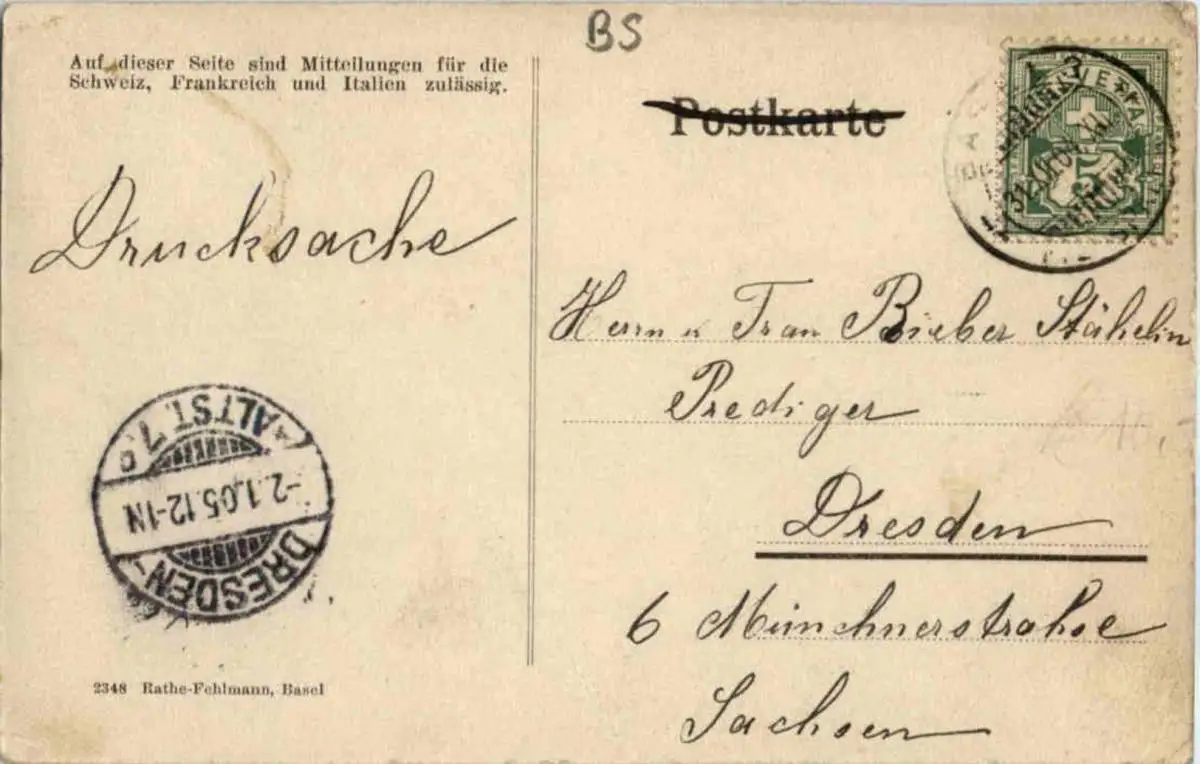 BS
Auf dieser Seite sind Mitteilungen für die
Schweiz, Frankreich und Italien zulässig.
Postkarte
Drucksache
Herrn u Frau Bieber Stähelin
Prediger
Dresden
6 Münchnerstrahse
Sachsen
DRESDEN-
-2.1.05.12-1N
ALTST. 7
5
2348 Rathe-Fehlmann, Basel